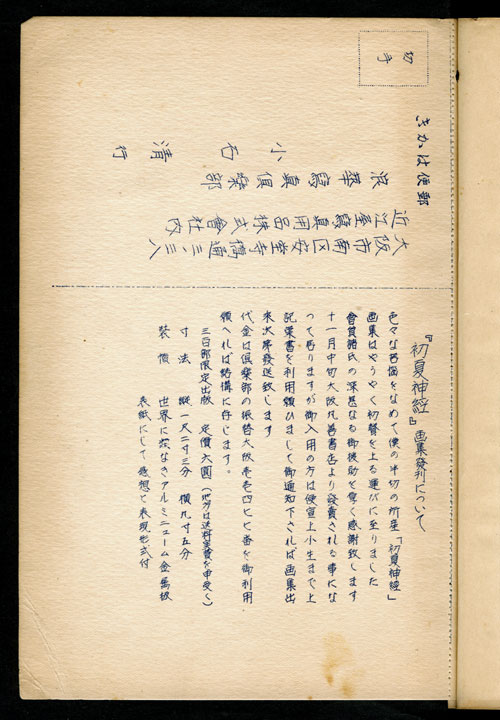 切手
郵便はがき
大阪市南区安堂寺橋通三ノ三八
近江屋写真用品株式會社内
浪華写真倶楽部
小石清行
『初夏神経』画集発刊について
色々な苦悩をなめて僕の半切の所産「初夏神経」
画集はやうやく初聲を上る運びに至りました
會員諸氏の深甚なる御後助を厚く感謝致します
十一月中旬大阪丸善書店より発賣される事にな
って居りますが御入用の方は便宜上小生まで上
記葉書を利用願ひまして御通知下されば画集出
来次第発送致します
代金は倶楽部の振替大阪壱壱四七七番を御利用
願へれば結構に存じます。
三百部限定出版 定價六圓(地方は送料実費を申受く)
寸法 縦一尺二寸三分 横九寸五分
装幀 世界に類なきアルミニューム金属板
表紙にして感想と表現形式付